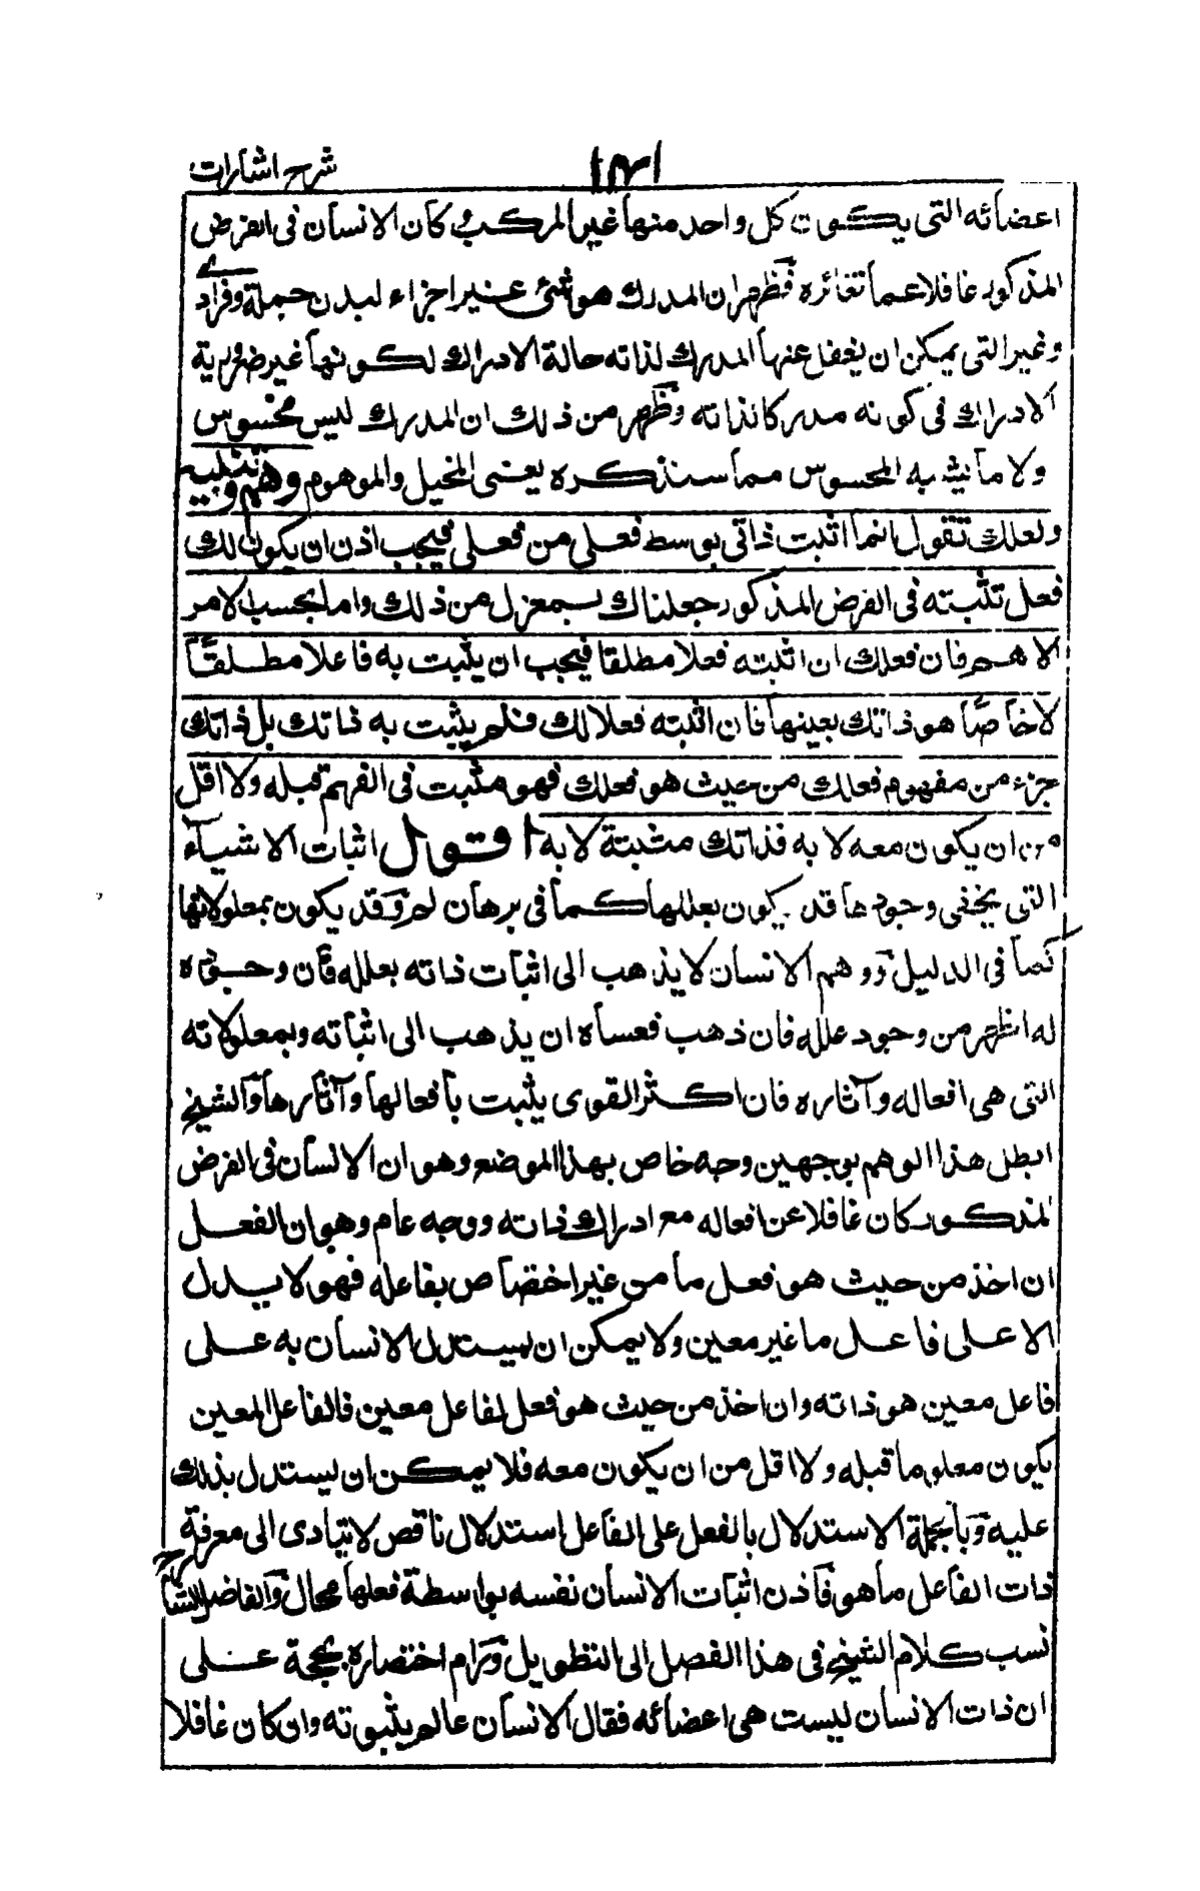 شرح اشارات
١٣١
اعضائه التى يكون كل واحد منها غير المركب و كان الانسان فى الفرض
المذكور غافلا عما تغائره فظهر ان المدرك هو شئ غير اجزاء البدن جملة وفرادى
وغير التى يمكن ان يغفل عنها المدرك لذاته حالة الادراك لكونها غير ضرورية
الادراك فى كونه مدركا لذاته وظهر من ذلك ان المدرك ليس محسوس
ولا ما يشبه المحسوس مما سنذكره يعنى المخيل والموهوم وهم وتنبيه
ولعلك تقول انما اثبت ذاتى بوسط فعلى من فعلى فيجب اذن ان يكون لك
فعل تثبته فى الفرض المذكور جعلناك بمعزل من ذلك واما بحسب الامر
الاهم فان فعلك ان اثبته فعلا مطلقا فيجب ان يثبت به فاعلا مطلقاً
لا خاصّاً هو ذاتك بعينها فان اثبته فعلا لك فلم يثبت به ذاتك بل ذاتك
جزء من مفهوم فعلك من حيث هو فعلك فهو مثبت فى الفهم قبله ولا اقل
من ان يكون معه لا به فذاتك مثبتة لا به اقول اثبات الاشياء
التى يخفى وجودها قد يكون بعللها كما فى برهان لم وقد يكون بمعلولاتها
كما فى الدليل ووهم الانسان لا يذهب الى اثبات ذاته بعلله فان وجوده
له اظهر من وجود علله فان ذهب فعساه ان يذهب الى اثباته وبمعلولاته
التى هى افعاله وآثاره فان اكثر القوى يثبت بأفعالها وآثارها والشيخ
ابطل هذا الوهم بوجهين وجه خاص بهذا الموضع وهو ان الانسان فى الفرض
المذكور كان غافلا عن افعاله مع ادراك ذاته ووجه عام وهو ان الفعل
ان اخذ من حيث هو فعل ما من غير اختصاص بفاعله فهو لا يدل
الا على فاعل ما غير معين ولا يمكن ان يستدل الانسان به على
فاعل معين هو ذاته وان اخذ من حيث هو فعل لفاعل معين فالفاعل المعين
يكون معلوما قبله ولا اقل من ان يكون معه فلا يمكن ان يستدل بذلك
عليه وبالجملة الاستدلال بالفعل على الفاعل استدلال ناقص لا يتادى الى معرفة
ذات الفاعل ما هو فاذن اثبات الانسان نفسه بواسطة فعلها محال والفاضل الشارح
نسب كلام الشيخ فى هذا الفصل الى التطويل ورام اختصاره بحجة على
ان ذات الانسان ليست هى اعضائه فقال الانسان عالم بثبوته وان كان غافلا